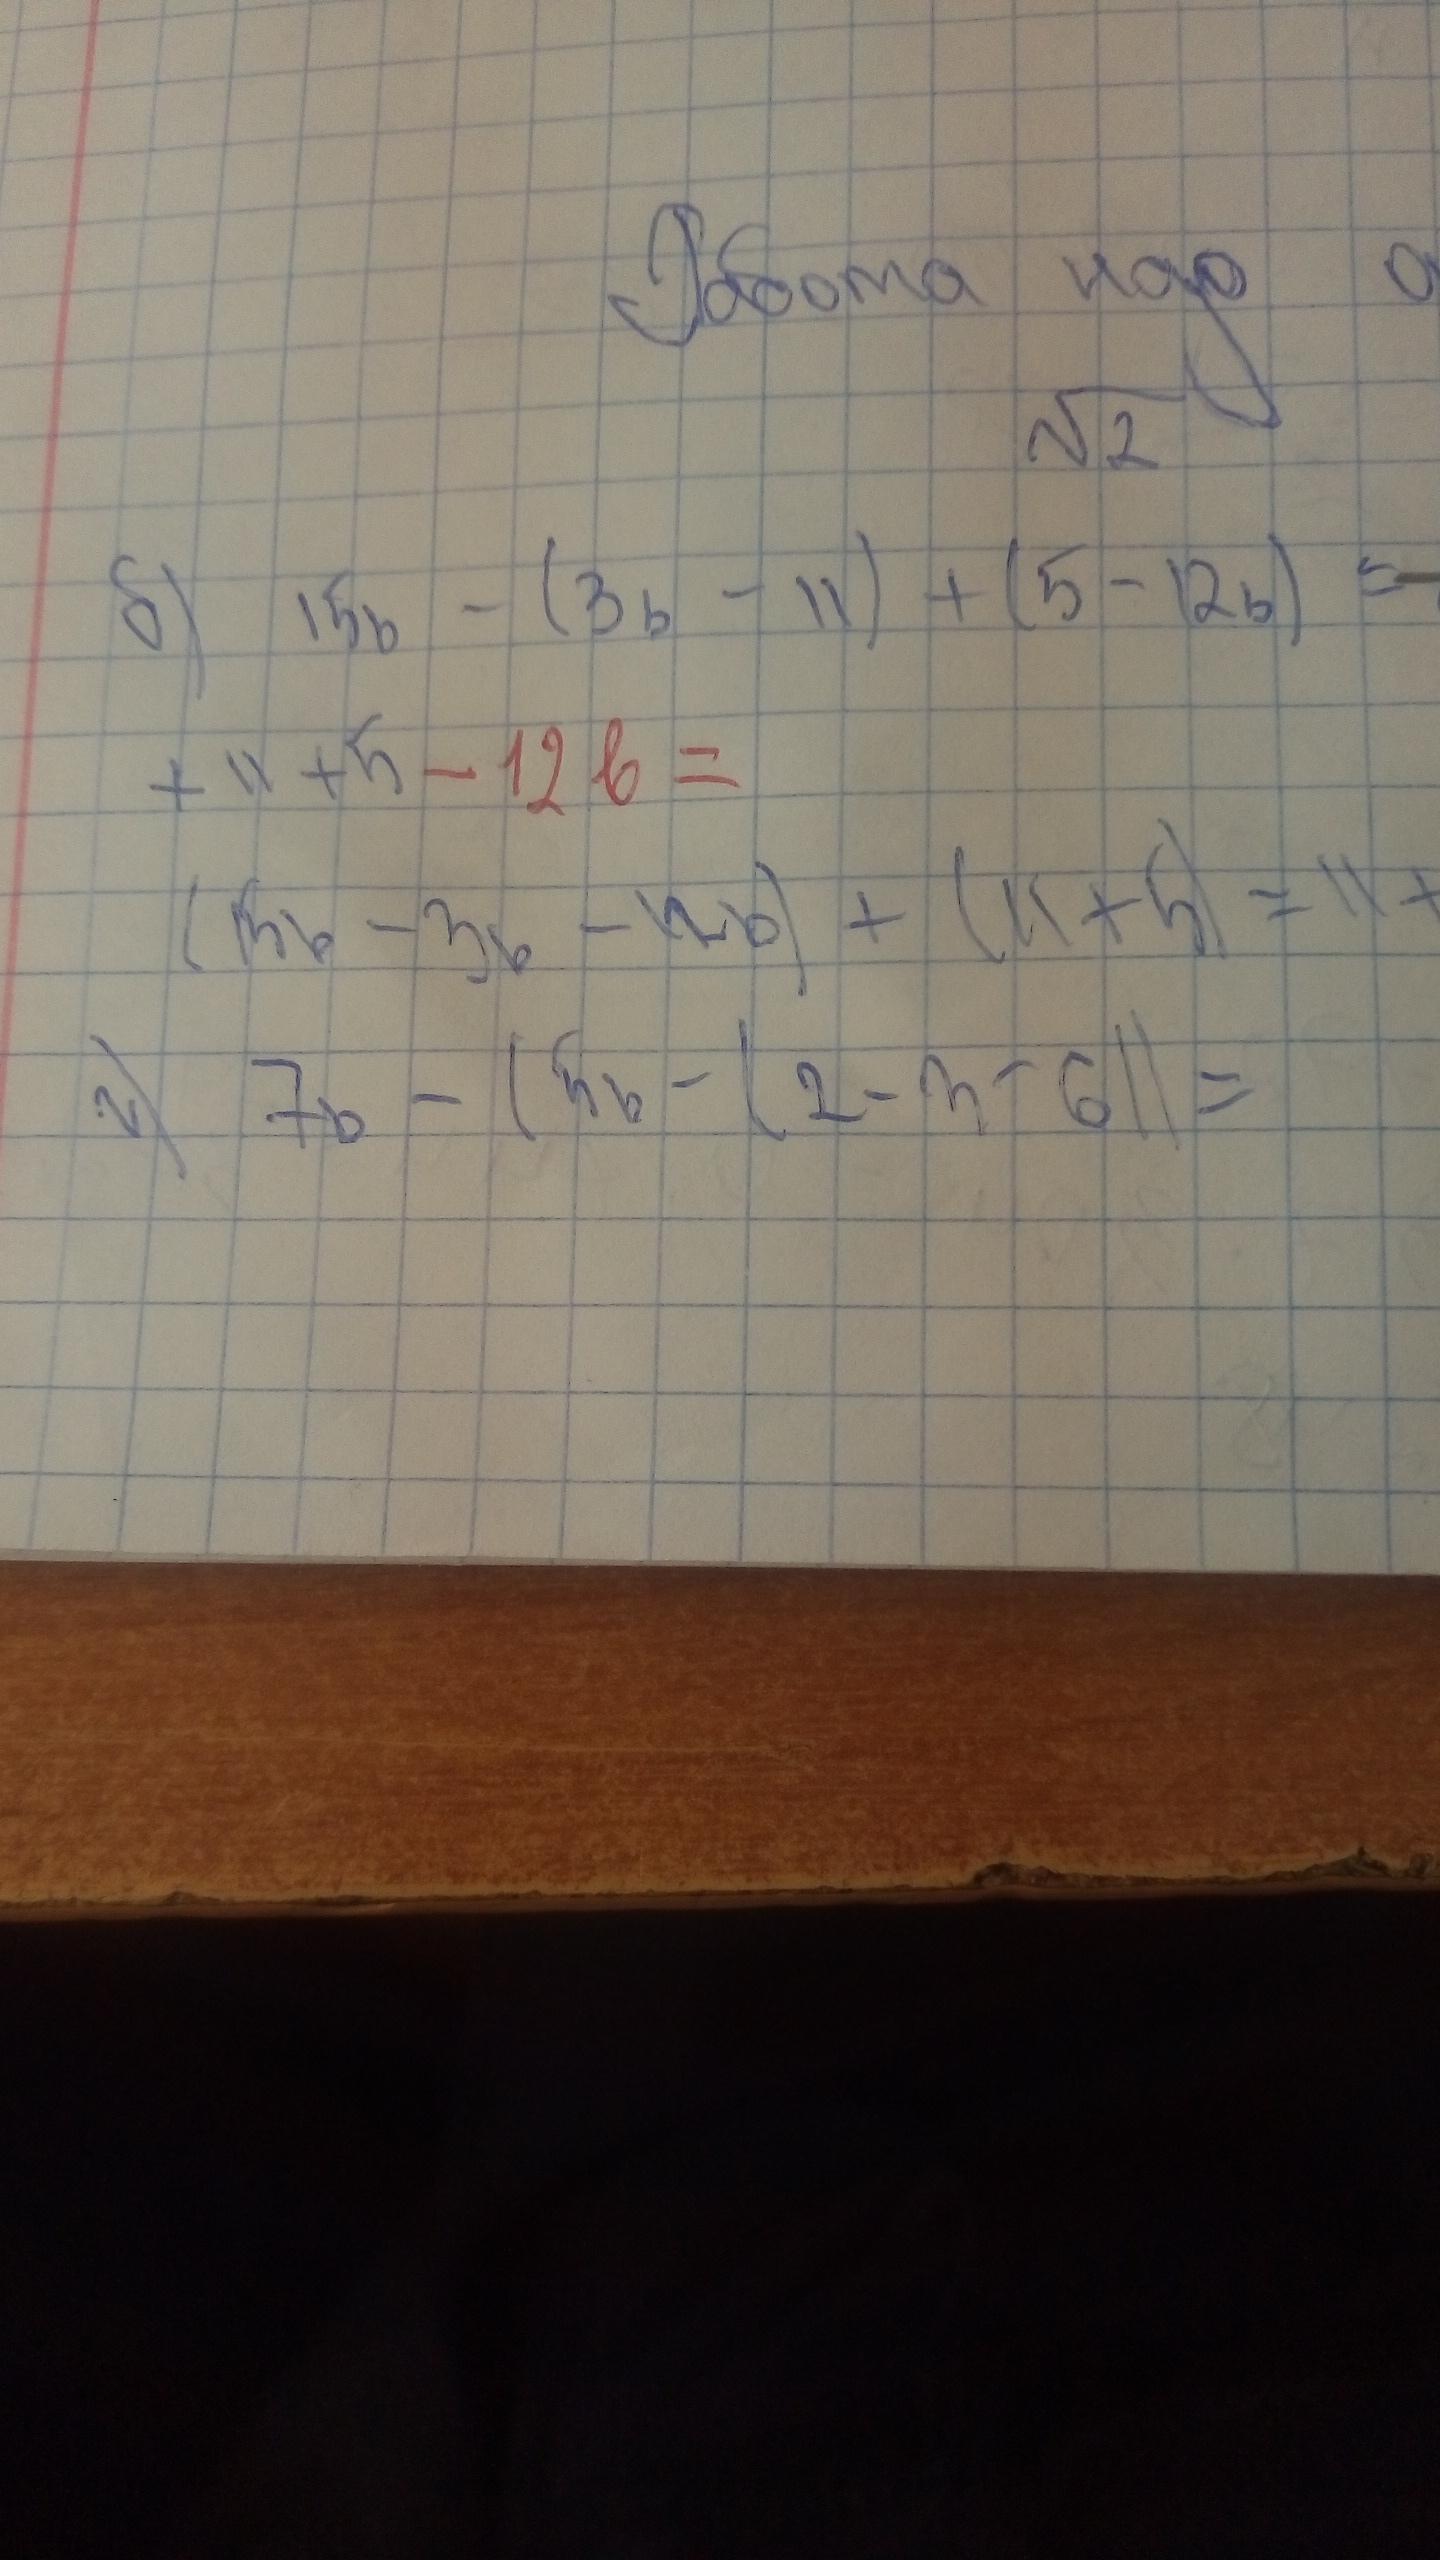 Работа над о
√2
б) 15b - (3b - 11) + (5 - 12b) =
+ 11 + 5 - 12b =
(15b - 3b - 12b) + (11 + 5) = 11 +
г) 7b - (5b - (2 - 3 - 6)) =